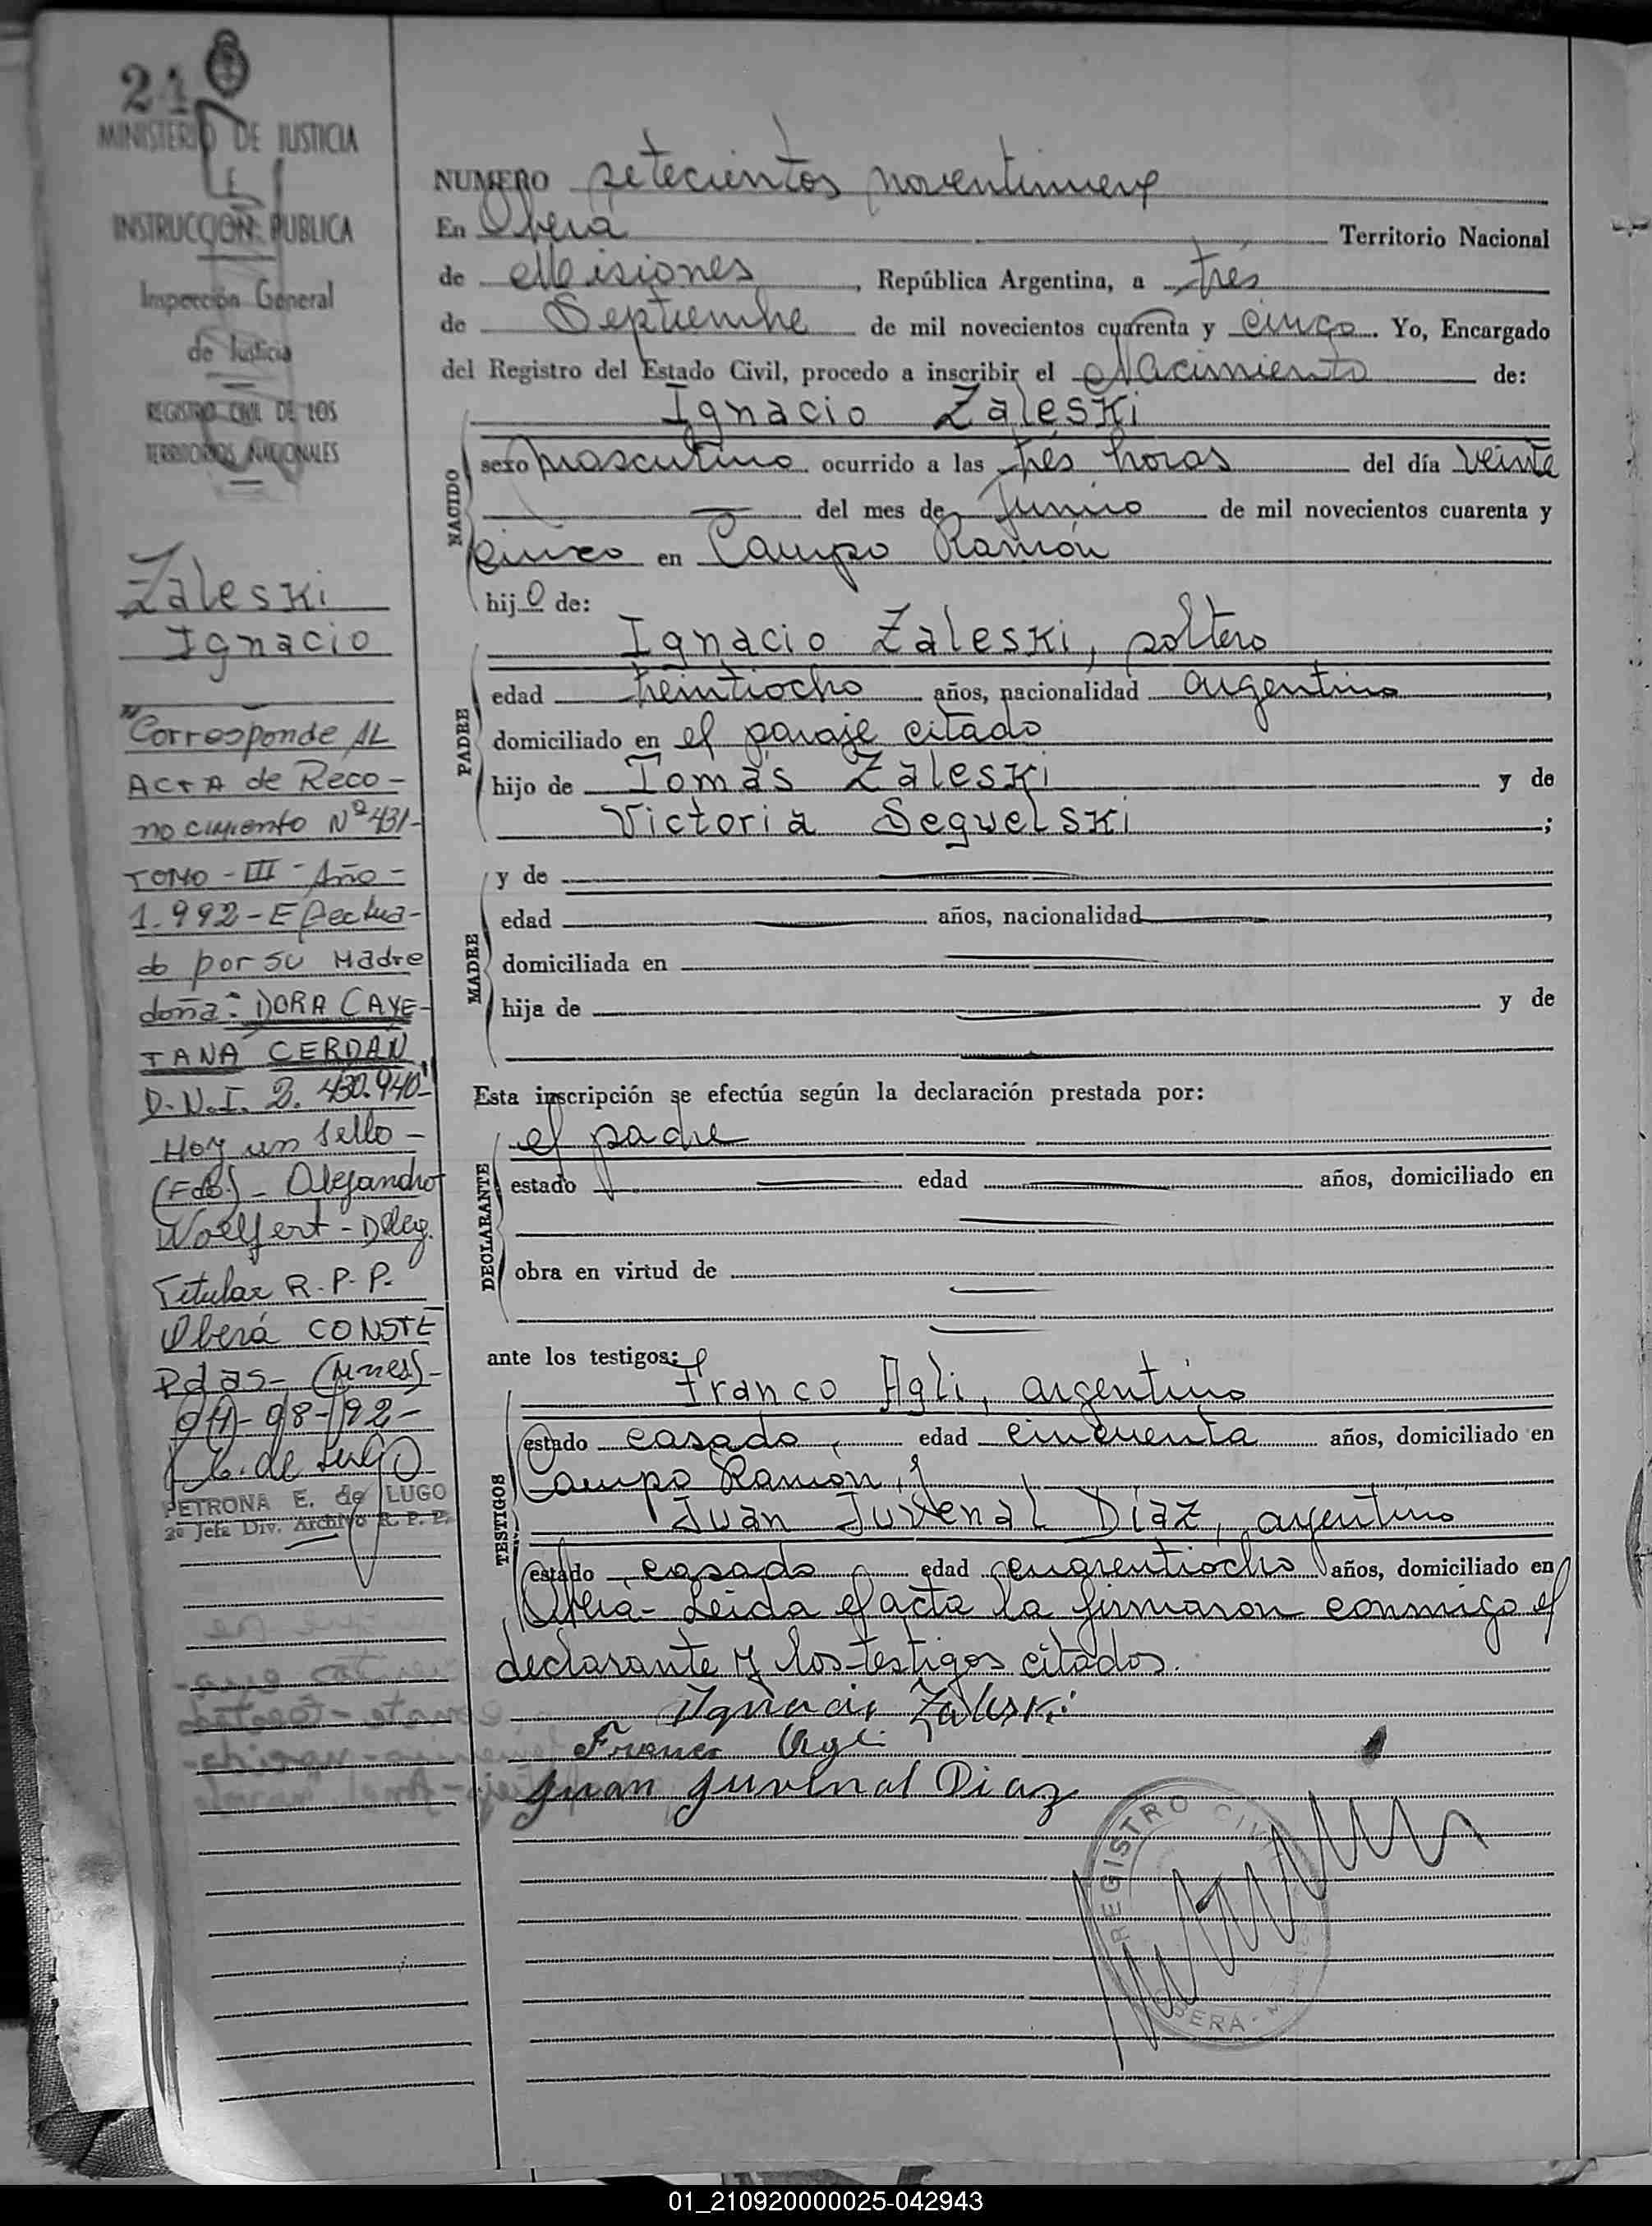 21
MINISTERIO DE JUSTICIA
E
INSTRUCCIÓN PUBLICA
Inspección General
de Justicia
REGISTRO CIVIL DE LOS
TERRITORIOS NACIONALES
Zaleski
Ignacio
"Corresponde AL
Acta de Reco-
nocimiento Nº 431-
TOMO - III - Año -
1.992 - Efectua-
do por su Madre
doña: DORA CAYE-
TANA CERDAN
D.N.I. 2.430.940-"
Hoy un sello -
(Fdo.) - Alejandro
Woelfert - Deleg.
Titular R.P.P.
Oberá CONSTE
Pdas - (Mnes) -
04-08-92-
E. de Lugo
PETRONA E. de LUGO
2º Jefe Div. Archivo R. P. P.
NUMERO setecientos noventinueve
En Oberá Territorio Nacional
de Misiones, República Argentina, a tres
de Septiembre de mil novecientos cuarenta y cinco. Yo, Encargado
del Registro del Estado Civil, procedo a inscribir el Nacimiento de:
Ignacio Zaleski
NACIDO
sexo masculino ocurrido a las tres horas del día veinte
del mes de Junio de mil novecientos cuarenta y
cinco en Campo Ramón
hijo de:
Ignacio Zaleski, soltero
PADRE
edad treintiocho años, nacionalidad argentino,
domiciliado en el paraje citado
hijo de Tomás Zaleski y de
Victoria Seguelski;
MADRE
y de
edad años, nacionalidad,
domiciliada en
hija de y de
Esta inscripción se efectúa según la declaración prestada por:
el padre
DECLARANTE
estado edad años, domiciliado en
obra en virtud de
ante los testigos:
Franco Agli, argentino
TESTIGOS
estado casado, edad cincuenta años, domiciliado en
Campo Ramón, y
Juan Juvenal Díaz, argentino
estado casado edad cuarentiocho años, domiciliado en
Oberá - Leida el acta la firmaron conmigo el
declarante y los testigos citados.
Ignacio Zaleski
Franco Agli
Juan Juvenal Diaz
REGISTRO CIVIL
OBERA -
01_210920000025-042943